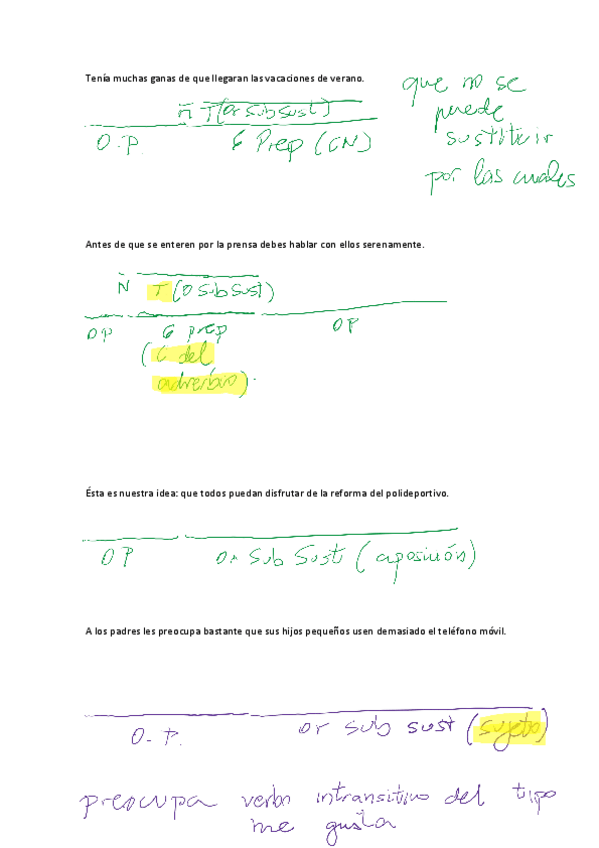 Tenía muchas ganas de que llegaran las vacaciones de verano.
que no se
puede
sustituir
por las cuales
n T (Or Sub Sust)
O.P G Prep (CN)
Antes de que se enteren por la prensa debes hablar con ellos serenamente.
N T (O Sub Sust)
OP G prep OP
(C del
adverbio).
Ésta es nuestra idea: que todos puedan disfrutar de la reforma del polideportivo.
OP Or Sub Sust (aposición)
A los padres les preocupa bastante que sus hijos pequeños usen demasiado el teléfono móvil.
O. P. or sub sust (sujeto)
preocupa verbo intransitivo del tipo
me gusta